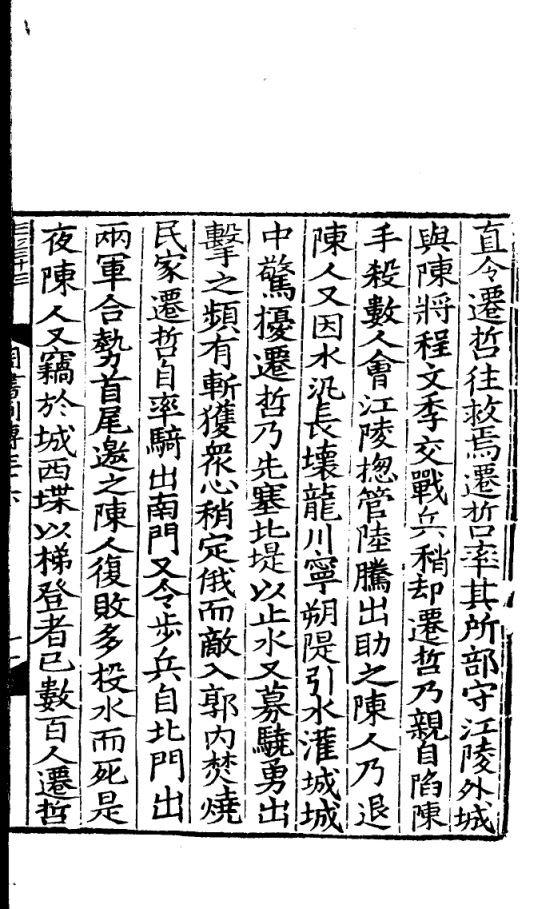 直令遷哲往救焉遷哲率其所部守江陵外城
與陳將程文季交戰兵稍却遷哲乃親自陷陳
手殺數人會江陵揔管陸騰出助之陳人乃退
陳人又因水汎長壞龍川寧朔隄引水灌城城
中驚擾遷哲乃先塞北堤以止水又募驍勇出
擊之頻有斬獲衆心稍定俄而敵入郭內焚燒
民家遷哲自率騎出南門又令步兵自北門出
兩軍合勢首尾邀之陳人復敗多投水而死是
夜陳人又竊於城西堞以梯登者已數百人遷哲